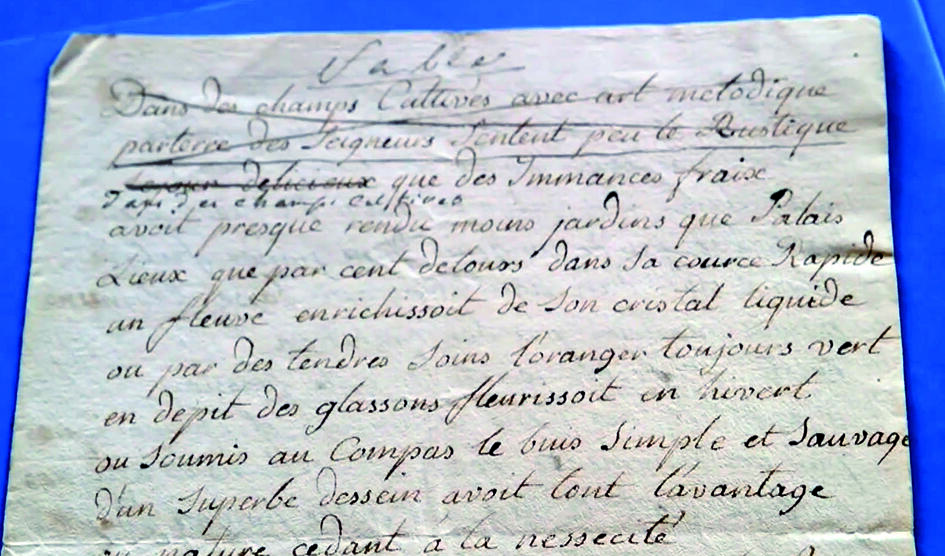 Fable
Dans des champs Cultivés avec art metodique
parterre des Seigneurs Sentent peu le Rustique
Sejour delicieux que des Immances fraix
Dans des champs cultives
avoit presque rendu moins jardins que Palais
Lieux que par cent detours dans sa cource Rapide
un fleuve enrichissoit de Son cristal liquide
ou par des tendres Soins l'oranger toujours vert
en depit des glassons fleurissoit en hivert
ou Soumis au Compas le buis Simple et Sauvage
d'un Superbe dessein avoit tout l'avantage
ou nature cedant à la nessecité